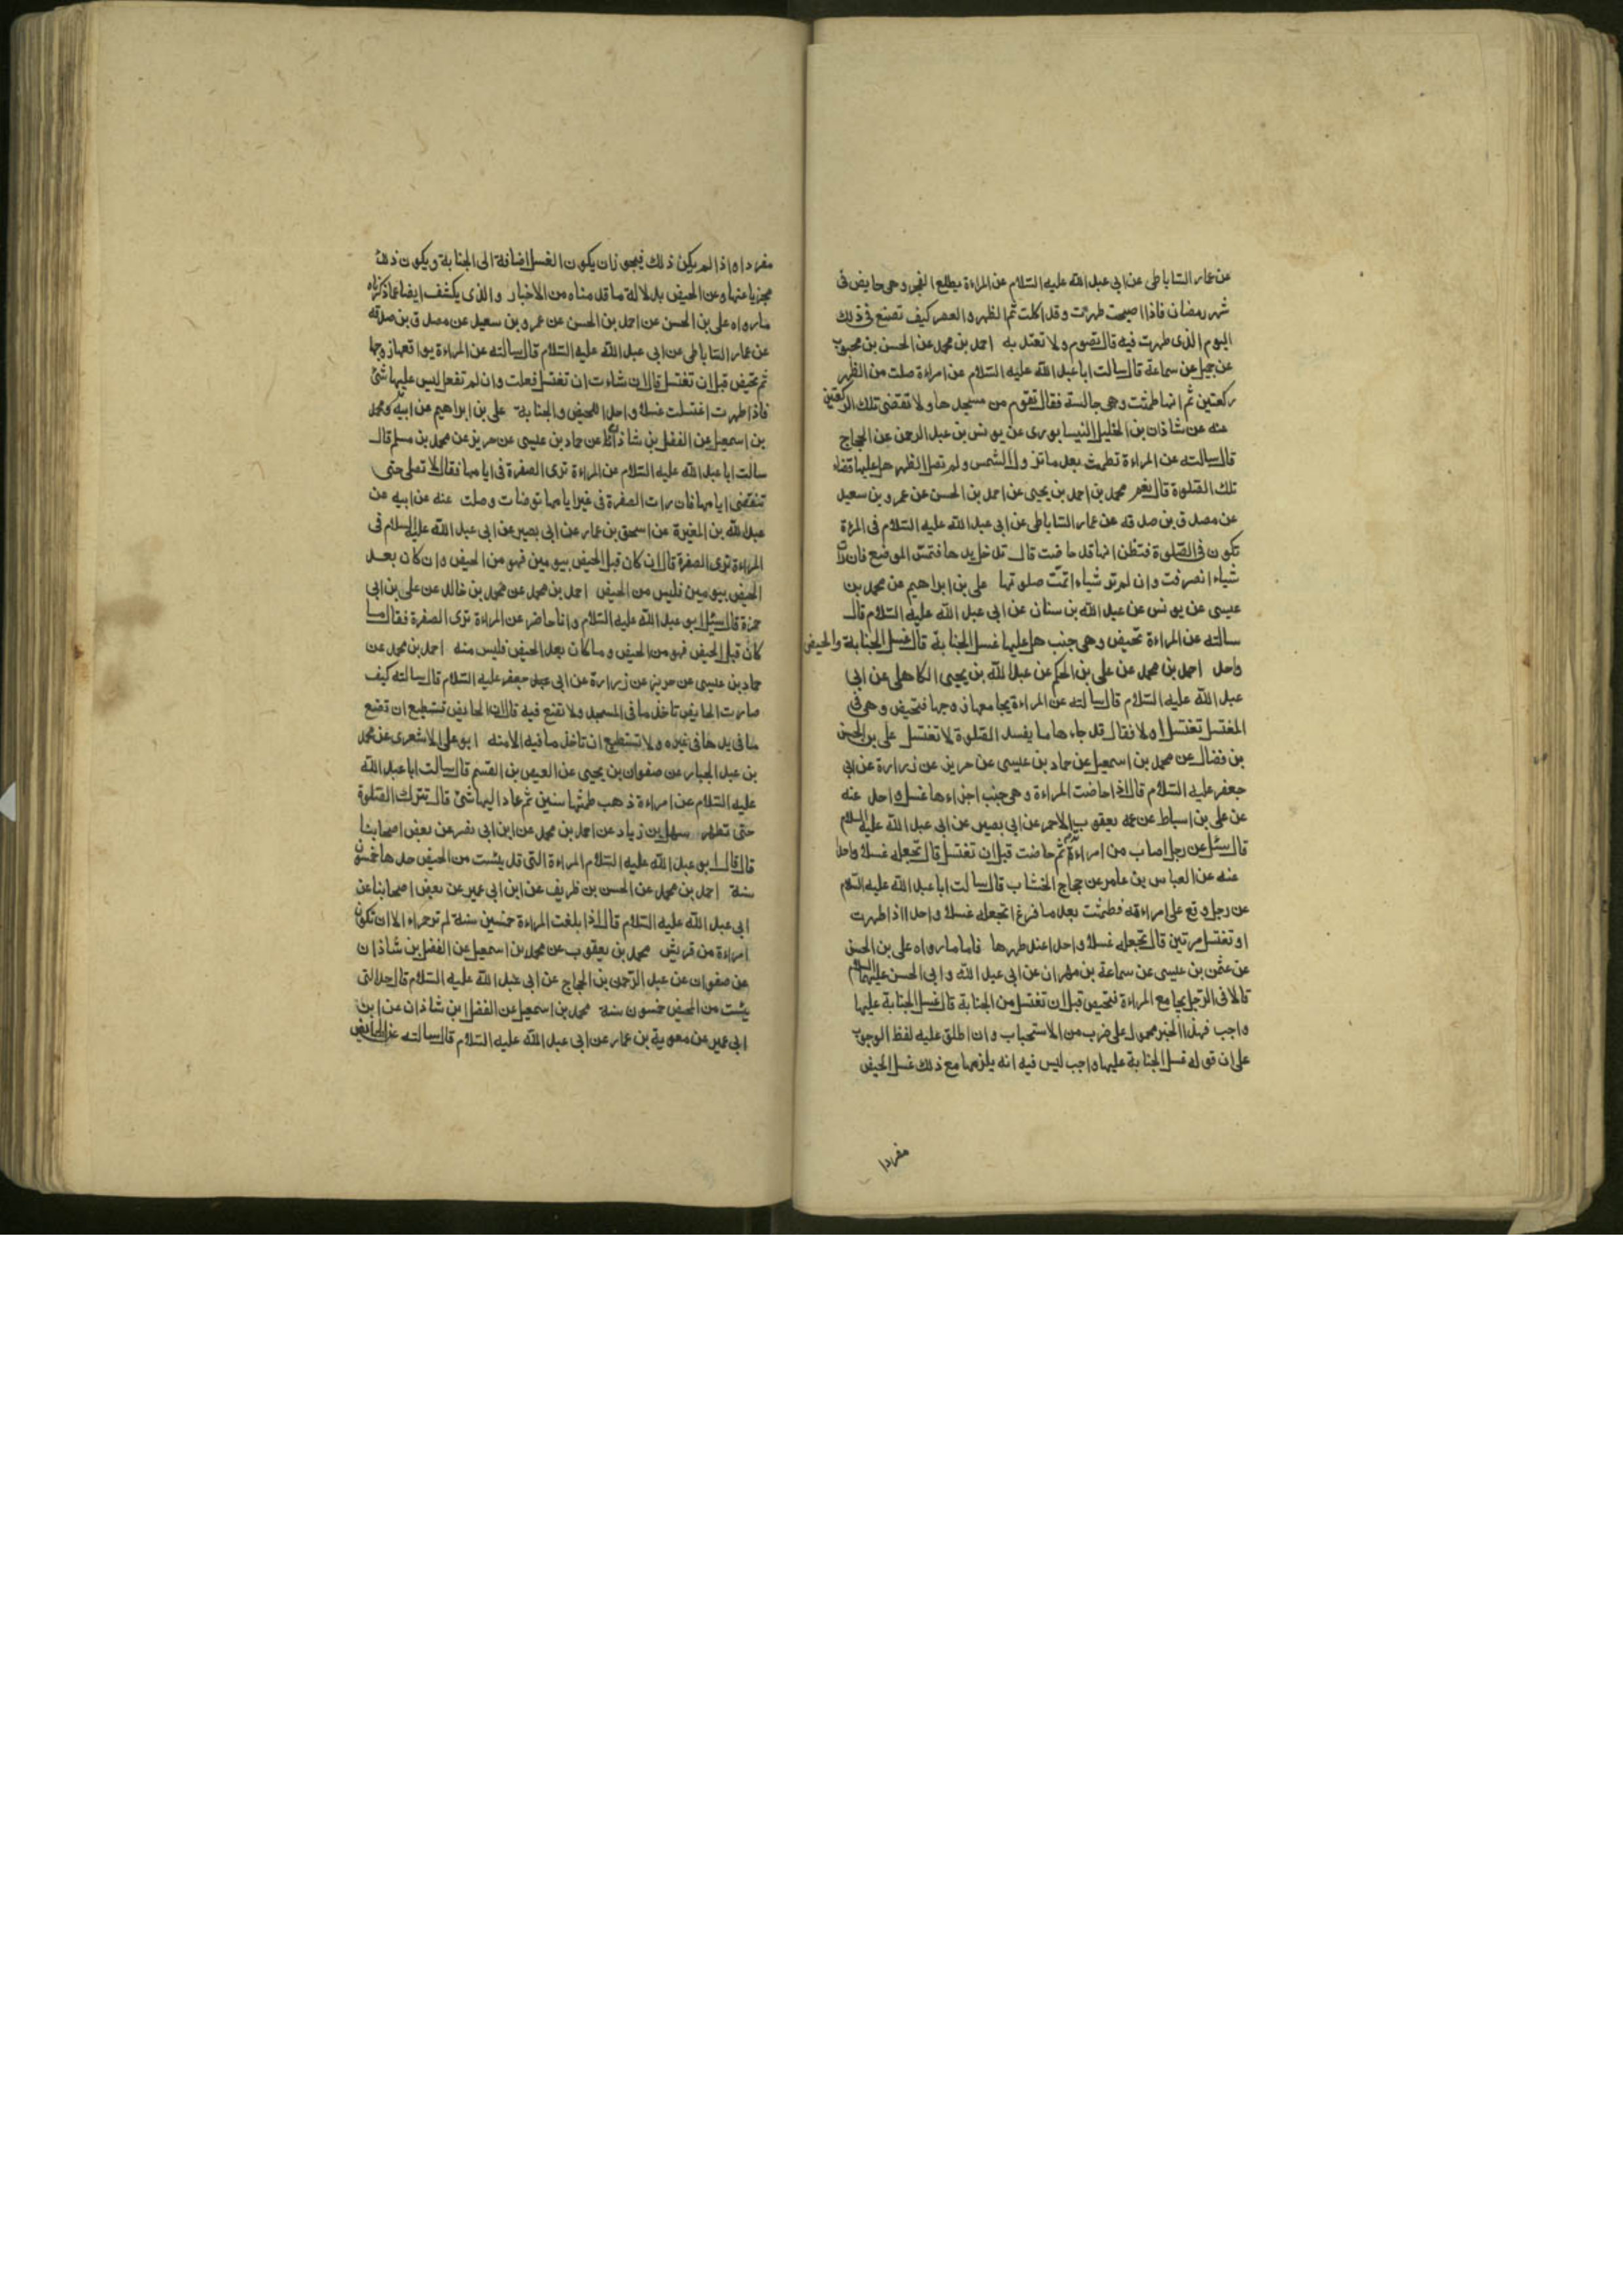 عن عمار الساباطى عن ابى عبد الله عليه السلام عن المراءة يطلع الفجر وهى حايض فى
شهر رمضان فاذا اصبحت طهرت وقد اكلت ثم الظهر والعصر كيف تصنع فى ذلك
اليوم الذى طهرت فيه قال تصوم ولا تعتد به احمد بن محمد عن الحسن بن محبوب
عن جميل عن سماعة قال سالت ابا عبد الله عليه السلام عن امراءة صلت من الظهر
ركعتين ثم انها طمثت وهى جالسة فقال تقوم من مسجدها ولا تقضى تلك الركعتين
عنه عن شاذان بن الخليل النيسابورى عن يونس بن عبد الرحمن عن الحجاج
قال سالته عن المراءة تطمث بعد ما تزول الشمس ولم تصل الظهر هل عليها قضاء
تلك الصلوة قال نعم محمد بن احمد بن يحيى عن احمد بن الحسن عن عمرو بن سعيد
عن مصدق بن صدقه عن عمار الساباطى عن ابى عبد الله عليه السلام فى المرءة
تكون فى الصلوة فتظن انها قد حاضت قال تدخل يدها فتمس الموضع فان رات
شياء انصرفت وان لم تر شياء اتمت صلوتها على بن ابراهيم عن محمد بن
عيسى عن يونس عن عبد الله بن سنان عن ابى عبد الله عليه السلام قال
سالته عن المراءة تحيض وهى جنب هل عليها غسل الجنابة قال غسل الجنابة والحيض
واحد احمد بن محمد عن على بن الحكم عن عبد الله بن يحيى الكاهلى عن ابى
عبد الله عليه السلام قال سالته عن المراءة يجامعها زوجها فتحيض وهى فى
المغتسل تغتسل او لا فقال قد جاءها ما يفسد الصلوة لا تغتسل على بن الحسن
بن فضال عن محمد بن اسمعيل عن حماد بن عيسى عن حريز عن زرارة عن ابى
جعفر عليه السلام قال اذا حاضت المراءة وهى جنب اجزاءها غسل واحد عنه
عن على بن اسباط عن عمه يعقوب الاحمر عن ابى بصير عن ابى عبد الله عليه السلام
قال سئل عن رجل اصاب من امراءة ثم حاضت قبل ان تغتسل قال تجعله غسلا واحدا
عنه عن العباس بن عامر عن حجاج الخشاب قال سالت ابا عبد الله عليه السلام
عن رجل وقع على امراءته فطمثت بعد ما فرغ اتجعله غسلا واحدا اذا طهرت
او تغتسل مرتين قال تجعله غسلا واحدا عند طهرها فاما ما رواه على بن الحسن
عن عثمن بن عيسى عن سماعة بن مهران عن ابى عبد الله وابى الحسن عليهما السلام
قالا فى الرجل يجامع المراءة فتحيض قبل ان تغتسل من الجنابة قال غسل الجنابة عليها
واجب فهذا الخبر محمول على ضرب من الاستحباب وان اطلق عليه لفظ الوجوب
على ان قوله غسل الجنابة عليها واجب ليس فيه انه يلزمها مع ذلك غسل الحيض
مفردا
مفردا واذا لم يكن ذلك فيجوز ان يكون الغسل اضافة الى الجنابة ويكون ذلك
مجزيا عنها وعن الحيض بدلالة ما قدمناه من الاخبار والذى يكشف ايضا عما ذكرناه
ما رواه على بن الحسن عن احمد بن الحسن عن عمرو بن سعيد عن مصدق بن صدقه
عن عمار الساباطى عن ابى عبد الله عليه السلام قال سالته عن المراءة يواقعها زوجها
ثم تحيض قبل ان تغتسل قال ان شاءت ان تغتسل فعلت وان لم تفعل ليس عليها شئ
فاذا طهرت اغتسلت غسلا واحدا للحيض والجنابة على بن ابراهيم عن ابيه ومحمد
بن اسمعيل عن الفضل بن شاذان عن حماد بن عيسى عن حريز عن محمد بن مسلم قال
سالت ابا عبد الله عليه السلام عن المراءة ترى الصفرة فى ايامها فقال لا تصلى حتى
تنقضى ايامها فان رات الصفرة فى غير ايامها توضات وصلت عنه عن ابيه عن
عبد الله بن المغيرة عن اسحق بن عمار عن ابى بصير عن ابى عبد الله عليه السلام فى
المراءة ترى الصفرة قال ان كان قبل الحيض بيومين فهو من الحيض وان كان بعد
الحيض بيومين فليس من الحيض احمد بن محمد عن محمد بن خالد عن على بن ابى
حمزة قال سئل ابو عبد الله عليه السلام وانا حاضر عن المراءة ترى الصفرة فقال ما
كان قبل الحيض فهو من الحيض وما كان بعد الحيض فليس منه احمد بن محمد عن
حماد بن عيسى عن حريز عن زرارة عن ابى جعفر عليه السلام قال سالته كيف
صارت الحايض تاخذ ما فى المسجد ولا تضع فيه قال ان الحايض تستطيع ان تضع
ما فى يدها فى غيره ولا تستطيع ان تاخذ ما فيه الا منه ابو على الاشعرى عن محمد
بن عبد الجبار عن صفوان بن يحيى عن العيص بن القسم قال سالت ابا عبد الله
عليه السلام عن امراءة ذهب طمثها سنين ثم عاد اليها شئ قال تترك الصلوة
حتى تطهر سهل بن زياد عن احمد بن محمد عن ابن ابى نصر عن بعض اصحابنا
قال قال ابو عبد الله عليه السلام المراءة التى قد يئست من الحيض حدها خمسون
سنة احمد بن محمد عن الحسن بن ظريف عن ابن ابى عمير عن بعض اصحابنا عن
ابى عبد الله عليه السلام قال اذا بلغت المراءة خمسين سنة لم تر حمراء الا ان تكون
امراءة من قريش محمد بن يعقوب عن محمد بن اسمعيل عن الفضل بن شاذان
عن صفوان عن عبد الرحمن بن الحجاج عن ابى عبد الله عليه السلام قال حد التى
يئست من الحيض خمسون سنة محمد بن اسمعيل عن الفضل بن شاذان عن ابن
ابى عمير عن معوية بن عمار عن ابى عبد الله عليه السلام قال سالته عن الحايض